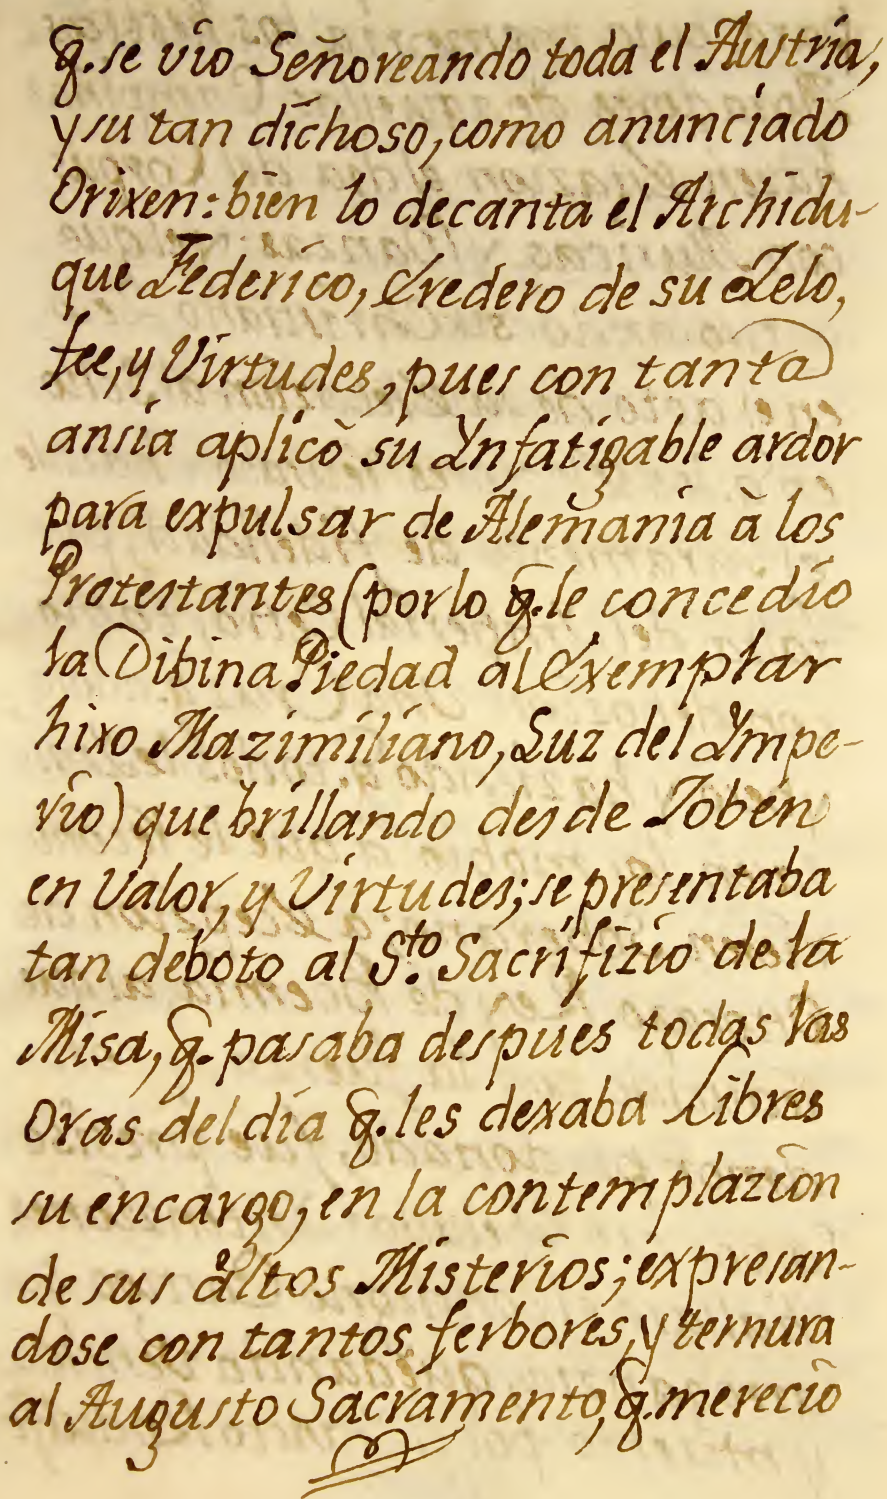 q̃. se vio Señoreando toda el Austria,
y su tan dichoso, como anunciado
Orixen: bien lo decanta el Archidu-
que Federico, Eredero de su Zelo,
fee, y Virtudes, pues con tanta
ansia aplicò su Ynfatigable ardor
para expulsar de Alemania à los
Protestantes (por lo q̃. le concedio
la Dibina Piedad al Exemplar
hixo Mazimiliano, Luz del Ympe-
rio) que brillando desde Joben
en Valor, y Virtudes; se presentaba
tan deboto al S.to Sacrifizio de la
Misa, q̃. pasaba despues todas las
Oras del dia q̃. les dexaba Libres
su encargo, en la contemplazion
de sus altos Misterios; expresan-
dose con tantos ferbores, y ternura
al Augusto Sacramento, q̃. merecio